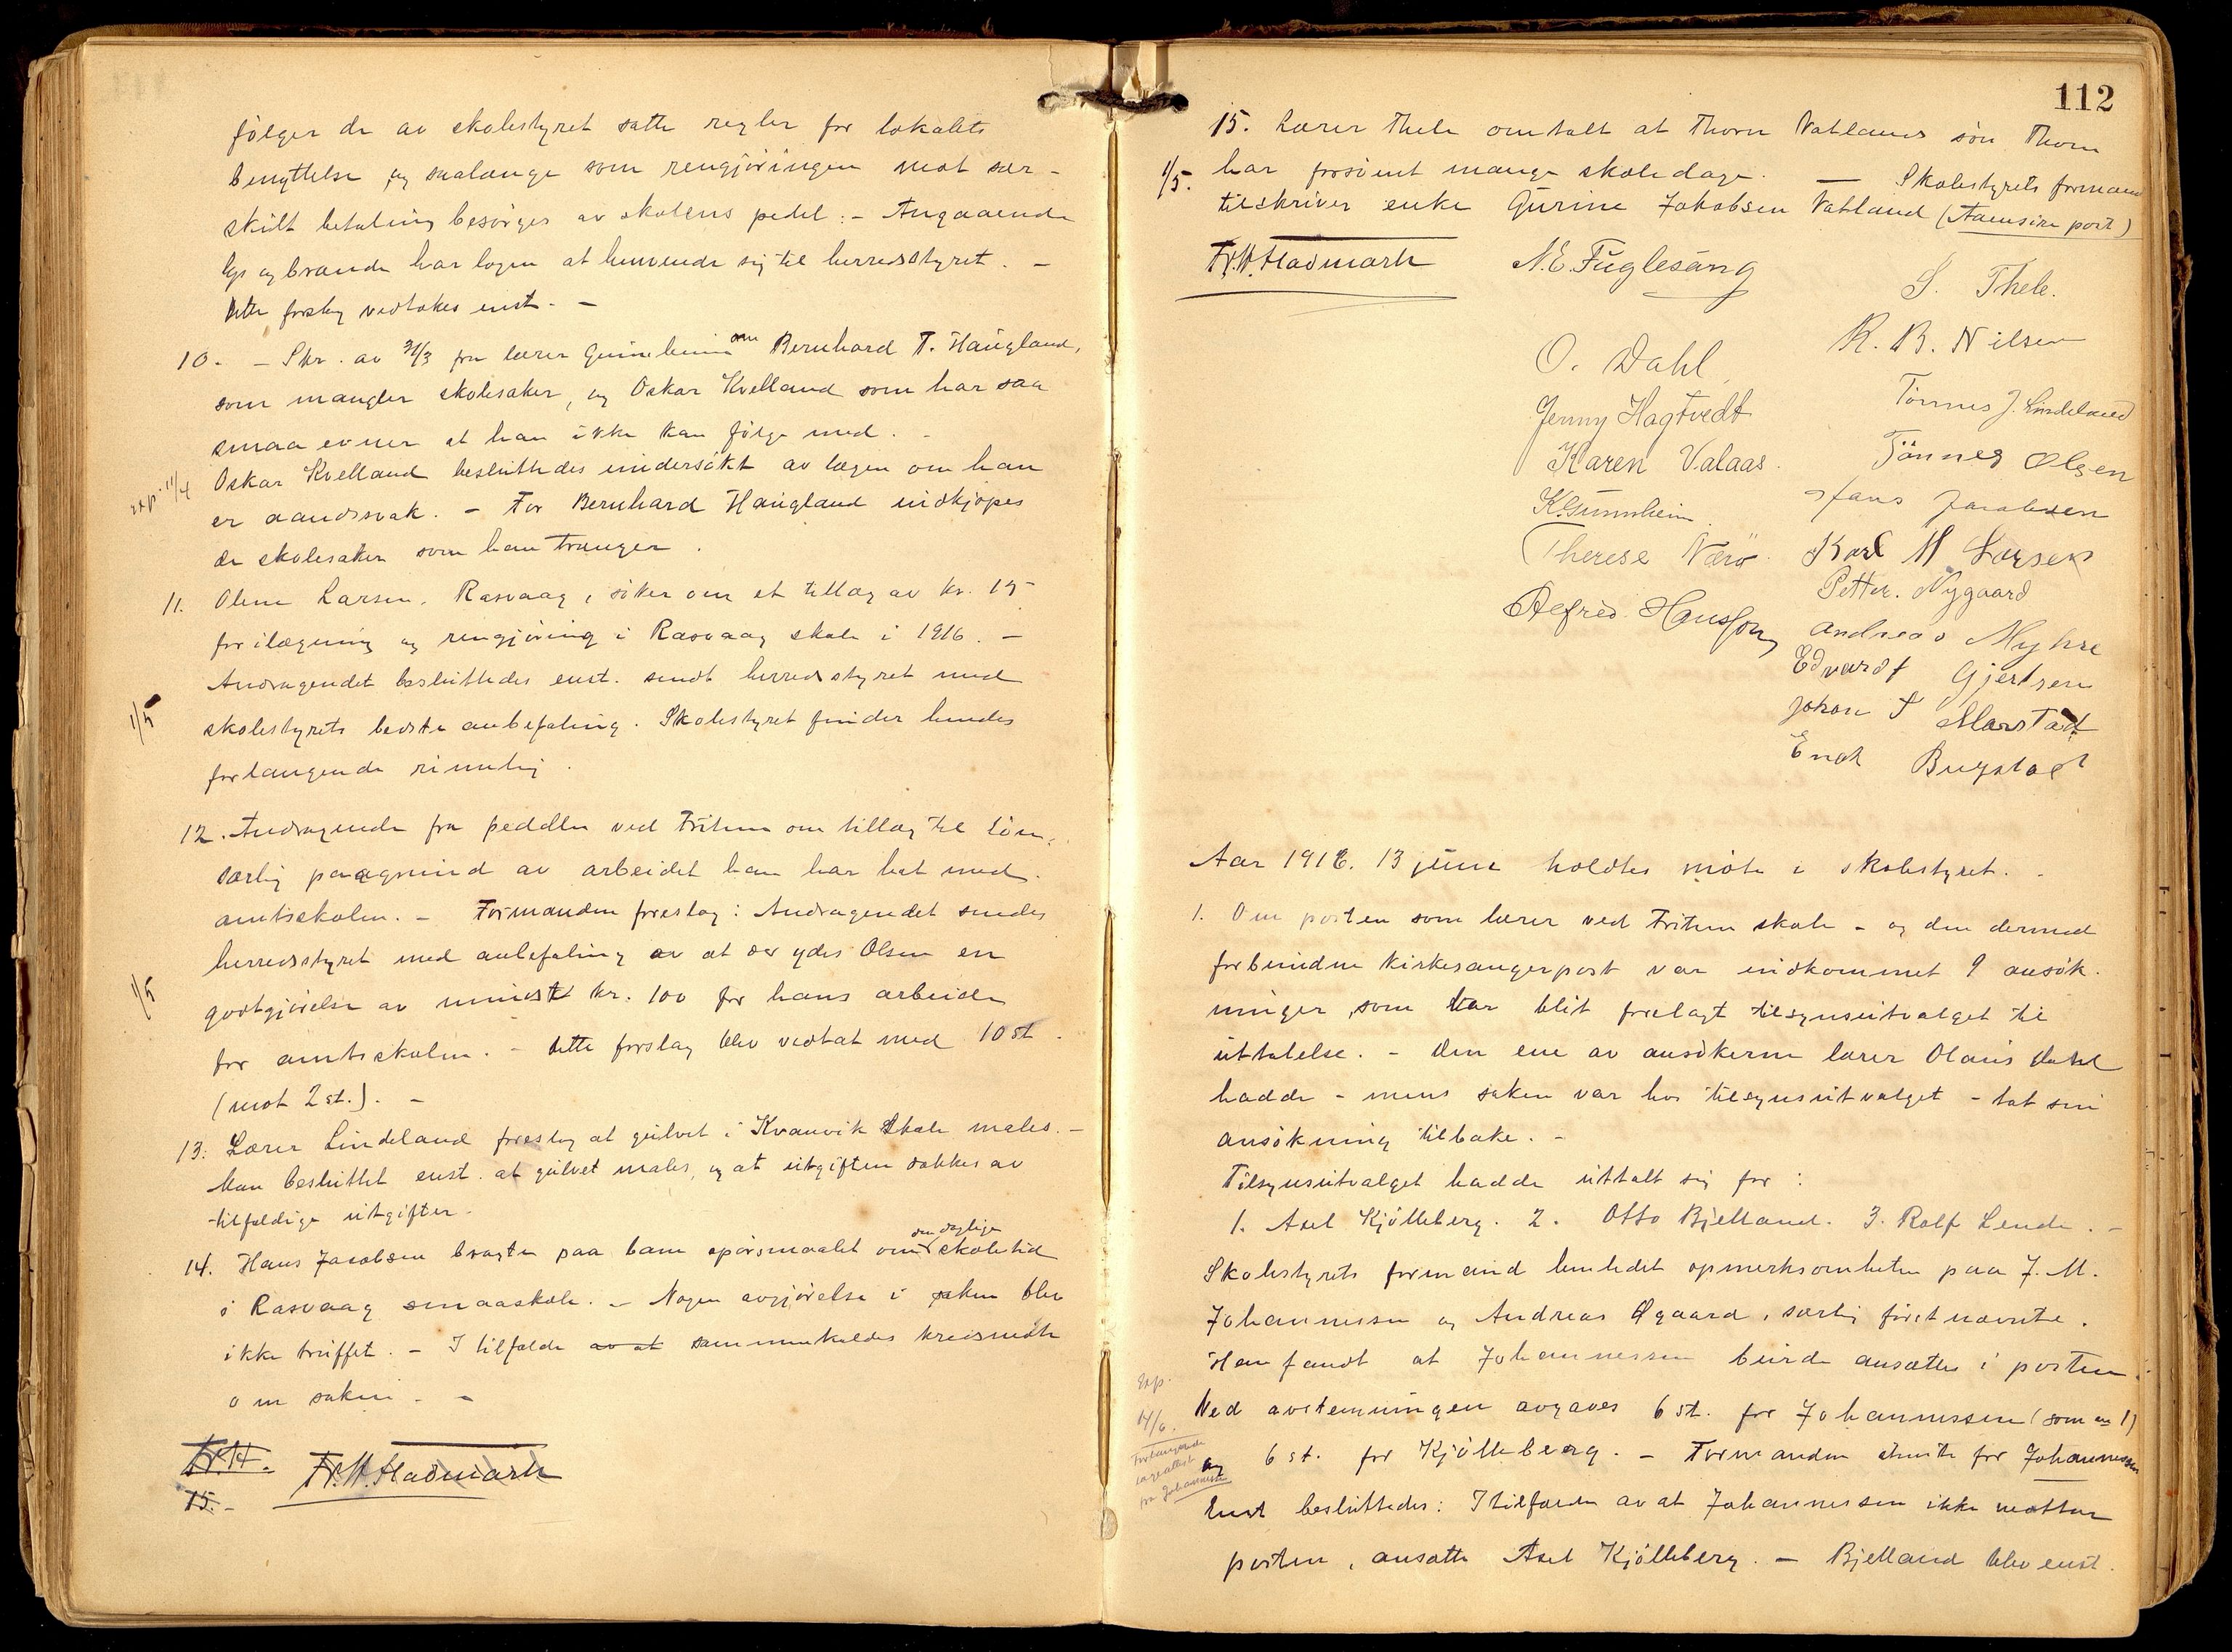 følger de av skolestyret satte regler for lokalets
benyttelse og saalænge som rengjøringen mot sær-
skilt betaling besørges av skolens pedel: - Angaaende
lys og brænde har logen at henvende sig til herredsstyret. -
Dette forslag vedtokes enst. -
10. - Skr. av 31/3 fra lærer Gunnheim om Bernhard T. Haugland,
som mangler skolesaker, og Oskar Kvelland som har saa
smaa evner at han ikke kan følge med. -
exp. 11/4
Oskar Kvelland besluttedes undersøkt av lægen om han
er aandssvak. - For Bernhard Haugland indkjøpes
de skolesaker som han trænger.
11. Olene Larsen, Rasvaag, søker om et tillæg av kr. 15
for ilægning og rengjøring i Rasvaag skole i 1916. -
Andragendet besluttedes enst. sendt herredsstyret med
1/5
skolestyrets bedste anbefaling. Skolestyret finder hendes
forlangende rimelig.
12. Andragende fra pedellen ved Fritun om tillæg til løn,
særlig paagrund av arbeidet han har hat med
amtsskolen. - Formanden foreslog: Andragendet sendes
herredsstyret med anbefaling av at der ydes Olsen en
1/5
godtgjørelse av mindst kr. 100 for hans arbeide
for amtsskolen. - Dette forslag blev vedtat med 10 st.
(mot 2 st.). -
13. Lærer Lindeland foreslog at gulvet i Kvanvik Skole males. -
Man besluttet enst. at gulvet males, og at utgiften dækkes av
tilfældige utgifter.
14. Hans Jacobsen bragte paa bane spørsmaalet om den daglige skoletid
i Rasvaag smaaskole. - Nogen avgjørelse i saken blev
ikke truffet. - I tilfælde av at sammenkaldes kredsmøte
om saken. -
Fr. H.
15. -
Fr. W. Hadmark
112
15. Lærer Thele omtalt at Thorn Vatlands søn Thorn
1/5.
har forsømt mange skoledage. - Skolestyrets formand
tilskriver enke Gurine Jakobsen Vatland (Aaensire post)
Fr. W. Hadmark N. E. Fuglesang
S. Thele.
O. Dahl
R. B. Nilsen
Jenny Hagtvedt
Tønnes J. Lindeland
Karen Valaas.
Tönnes Olsen
K. Gunnheim.
Hans Jacobsen
Therese Nærø.
Karl M Larsen
Petter. Nygaard
Alfred Hansson
Andreas Myhre
Edvardt Gjertsen
Johan T Marstad
Enok Bugstad
Aar 1916. 13 juni holdtes møte i skolestyret. -
1. Om posten som lærer ved Fritun skole - og den dermed
forbundne kirkesangerpost var indkommet 9 ansøk-
ninger, som har blit forelagt tilsynsutvalget til
uttalelse. - Den ene av ansøkerne lærer Olaus Dahl
hadde - mens saken var hos tilsynsutvalget - tat sin
ansøkning tilbake. -
Tilsynsutvalget hadde uttalt sig for:
1. Axel Kjølleberg. 2. Otto Bjelland. 3. Rolf Lende. -
Skolestyrets formand henledet opmerksomheten paa J. M.
Johannessen og Andreas Øgaard, særlig førstnævnte.
Han fandt at Johannessen burde ansættes i posten.
Exp.
14/6.
Ved avstemningen avgaves 6 st. for Johannessen (som nr 1)
Forlangende
lægeattest
fra Johannessen
og 6 st. for Kjølleberg. - Formanden stemte for Johannessen
Enst besluttedes: I tilfælde av at Johannessen ikke mottar
posten, ansætte Axel Kjølleberg. - Bjelland blev enst.